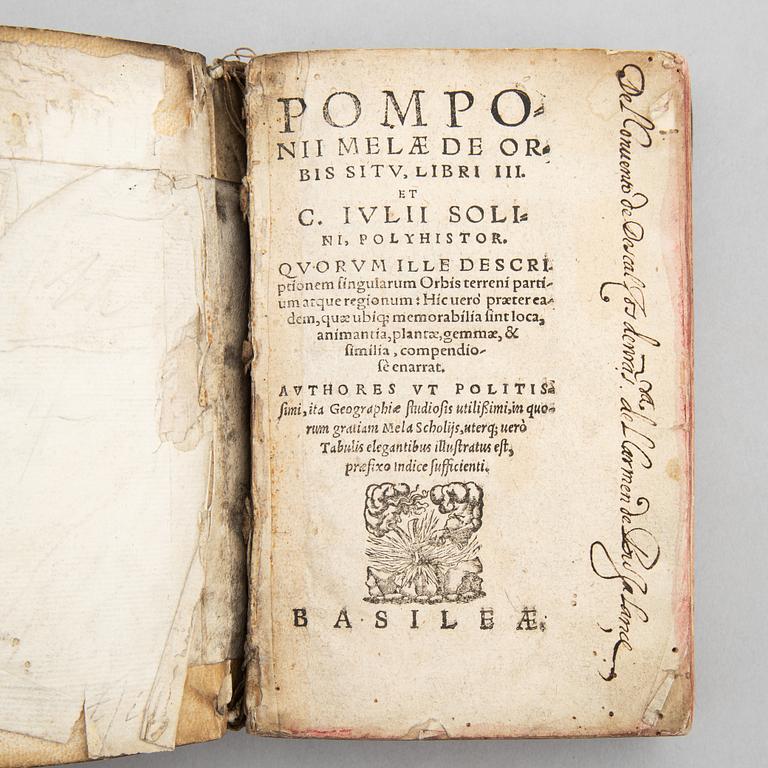 POMPO-
NII MELÆ DE OR-
BIS SITV, LIBRI III.
ET
C. IVLII SOLI-
NI, POLYHISTOR.
QVORVM ILLE DESCRI-
ptionem singularum Orbis terreni parti-
um atque regionum: Hic uerò præter ea-
dem, quæ ubiq; memorabilia sint loca,
animantia, plantæ, gemmæ, &
similia, compendio-
sè enarrat.
AVTHORES VT POLITIS-
simi, ita Geographiæ studiosis utilißimi, in quo-
rum gratiam Mela Scholijs, uterq; uerò
Tabulis elegantibus illustratus est,
præfixo Indice sufficienti.
BASILEÆ.
Del Conuento de Descalços de nra. Sra. del Carmen de